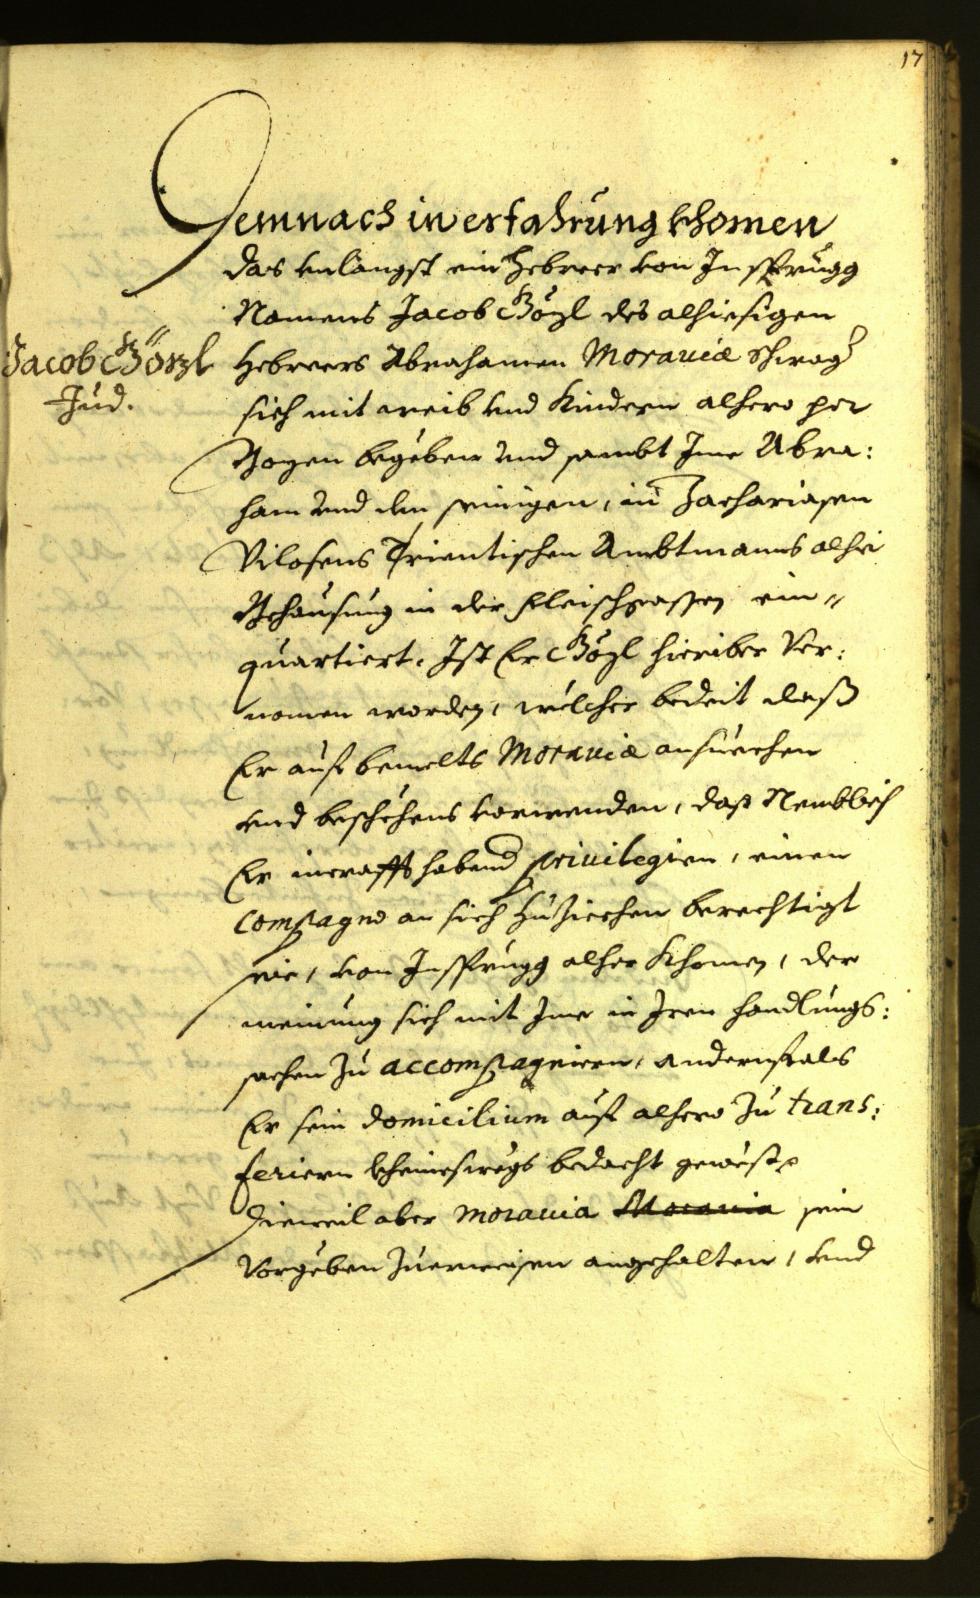 17
Demnach in erfahrung khomen
das unlängst ein Hebreer von Insprugg
Namens Jacob Gözl des alhiesigen
Jacob Gözl
Jud.
Hebreers Abrahamen Moraviæ Schwager
sich mit weib und Kindern alhero per
Bozen begeben und sambt Ime Abra:
ham und den seinigen, in Zachariasen
Vilosens Trientischen Ambtmanns alhie
Behausung in der fleischgassen ein„
quartiert. Ist Er Gözl hieriber Ver:
nomen worden, welcher bedeit dass
Er auf bemelts Moraviæ ansuechen
und beschehens vorwenden, dass Nemblich
Er in crafft habend privilegien, einen
Compagno an sich zuziechen berechtigt
seie, von Insprugg alher khomen, der
meinung sich mit Ime in Iren handlungs:
sachen zu accompagniern, andernfals
Er sein domicilium auf alhero zu trans:
feriern kheineswegs bedacht gewest.
Dieweil aber Moravia Moravia sein
Vorgeben zuerweisen angehalten, und